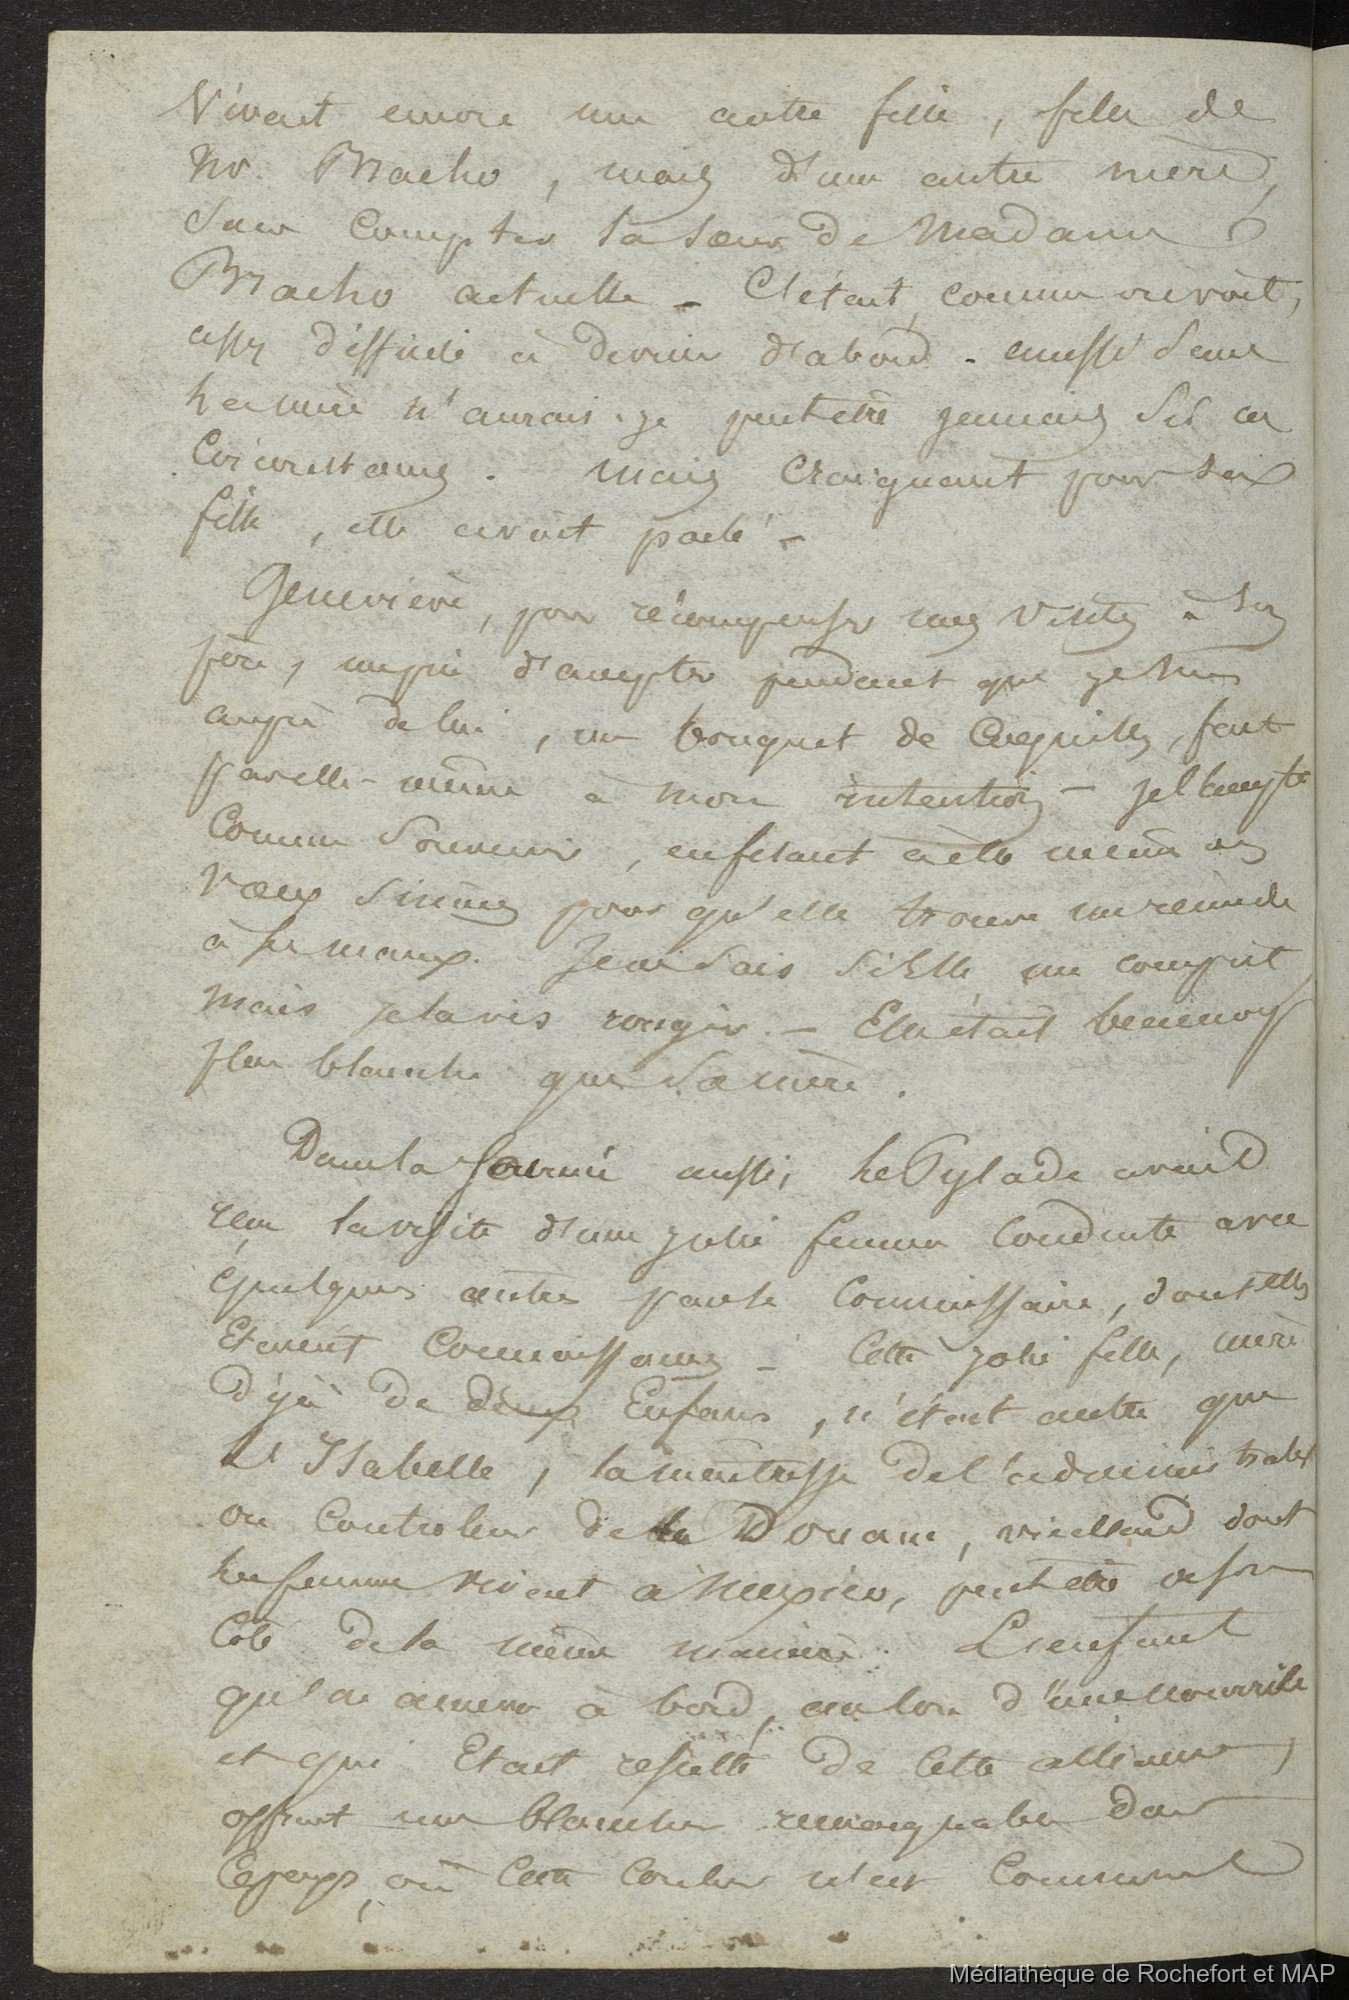 Vivait encore une autre fille, fille de
Mr. Bracho, mais d'une autre mère,
sans compter la sœur de Madame
Bracho actuelle - C'était, comme on voit,
assez difficile à deviner d'abord - aussi sans
la mère n'aurais-je peut être jamais su ces
Circonstances. mais craignant pour sa
fille, elle avait parlé -
Geneviève, pour récompenser mes visites à son
père, me pria d'accepter pendant que je fus
auprès de lui, un bouquet de Coquilles, fait
par elle-même à mon intention - je l'acceptai
Comme souvenir, en faisant à elle même des
vœux sincères pour qu'elle trouve un remède
à ses maux. Je ne sais si Elle me comprit
mais je la vis rougir. - Elle était beaucoup
plus blanche que sa mère.
Dans la Journée aussi, le Pylade avait
reçu la visite d'une jolie femme conduite avec
quelques autres par le Commissaire, dont elles
Etaient Connaissances - Cette jolie fille, mère
déjà de deux Enfans, n'était autre que
Isabelle, la maîtresse de l'administrateur
ou Controleur de la Douane, vieillard dont
la femme vivait à Mexico, peut être de son
Côté de la même manière. L'enfant
qu'on amena à bord, au sein d'une nourrice
et qui Etait résulté de cette alliance,
offrait une blancheur remarquable dans
Ce pays, où cette couleur n'est commune
Médiathèque de Rochefort et MAP